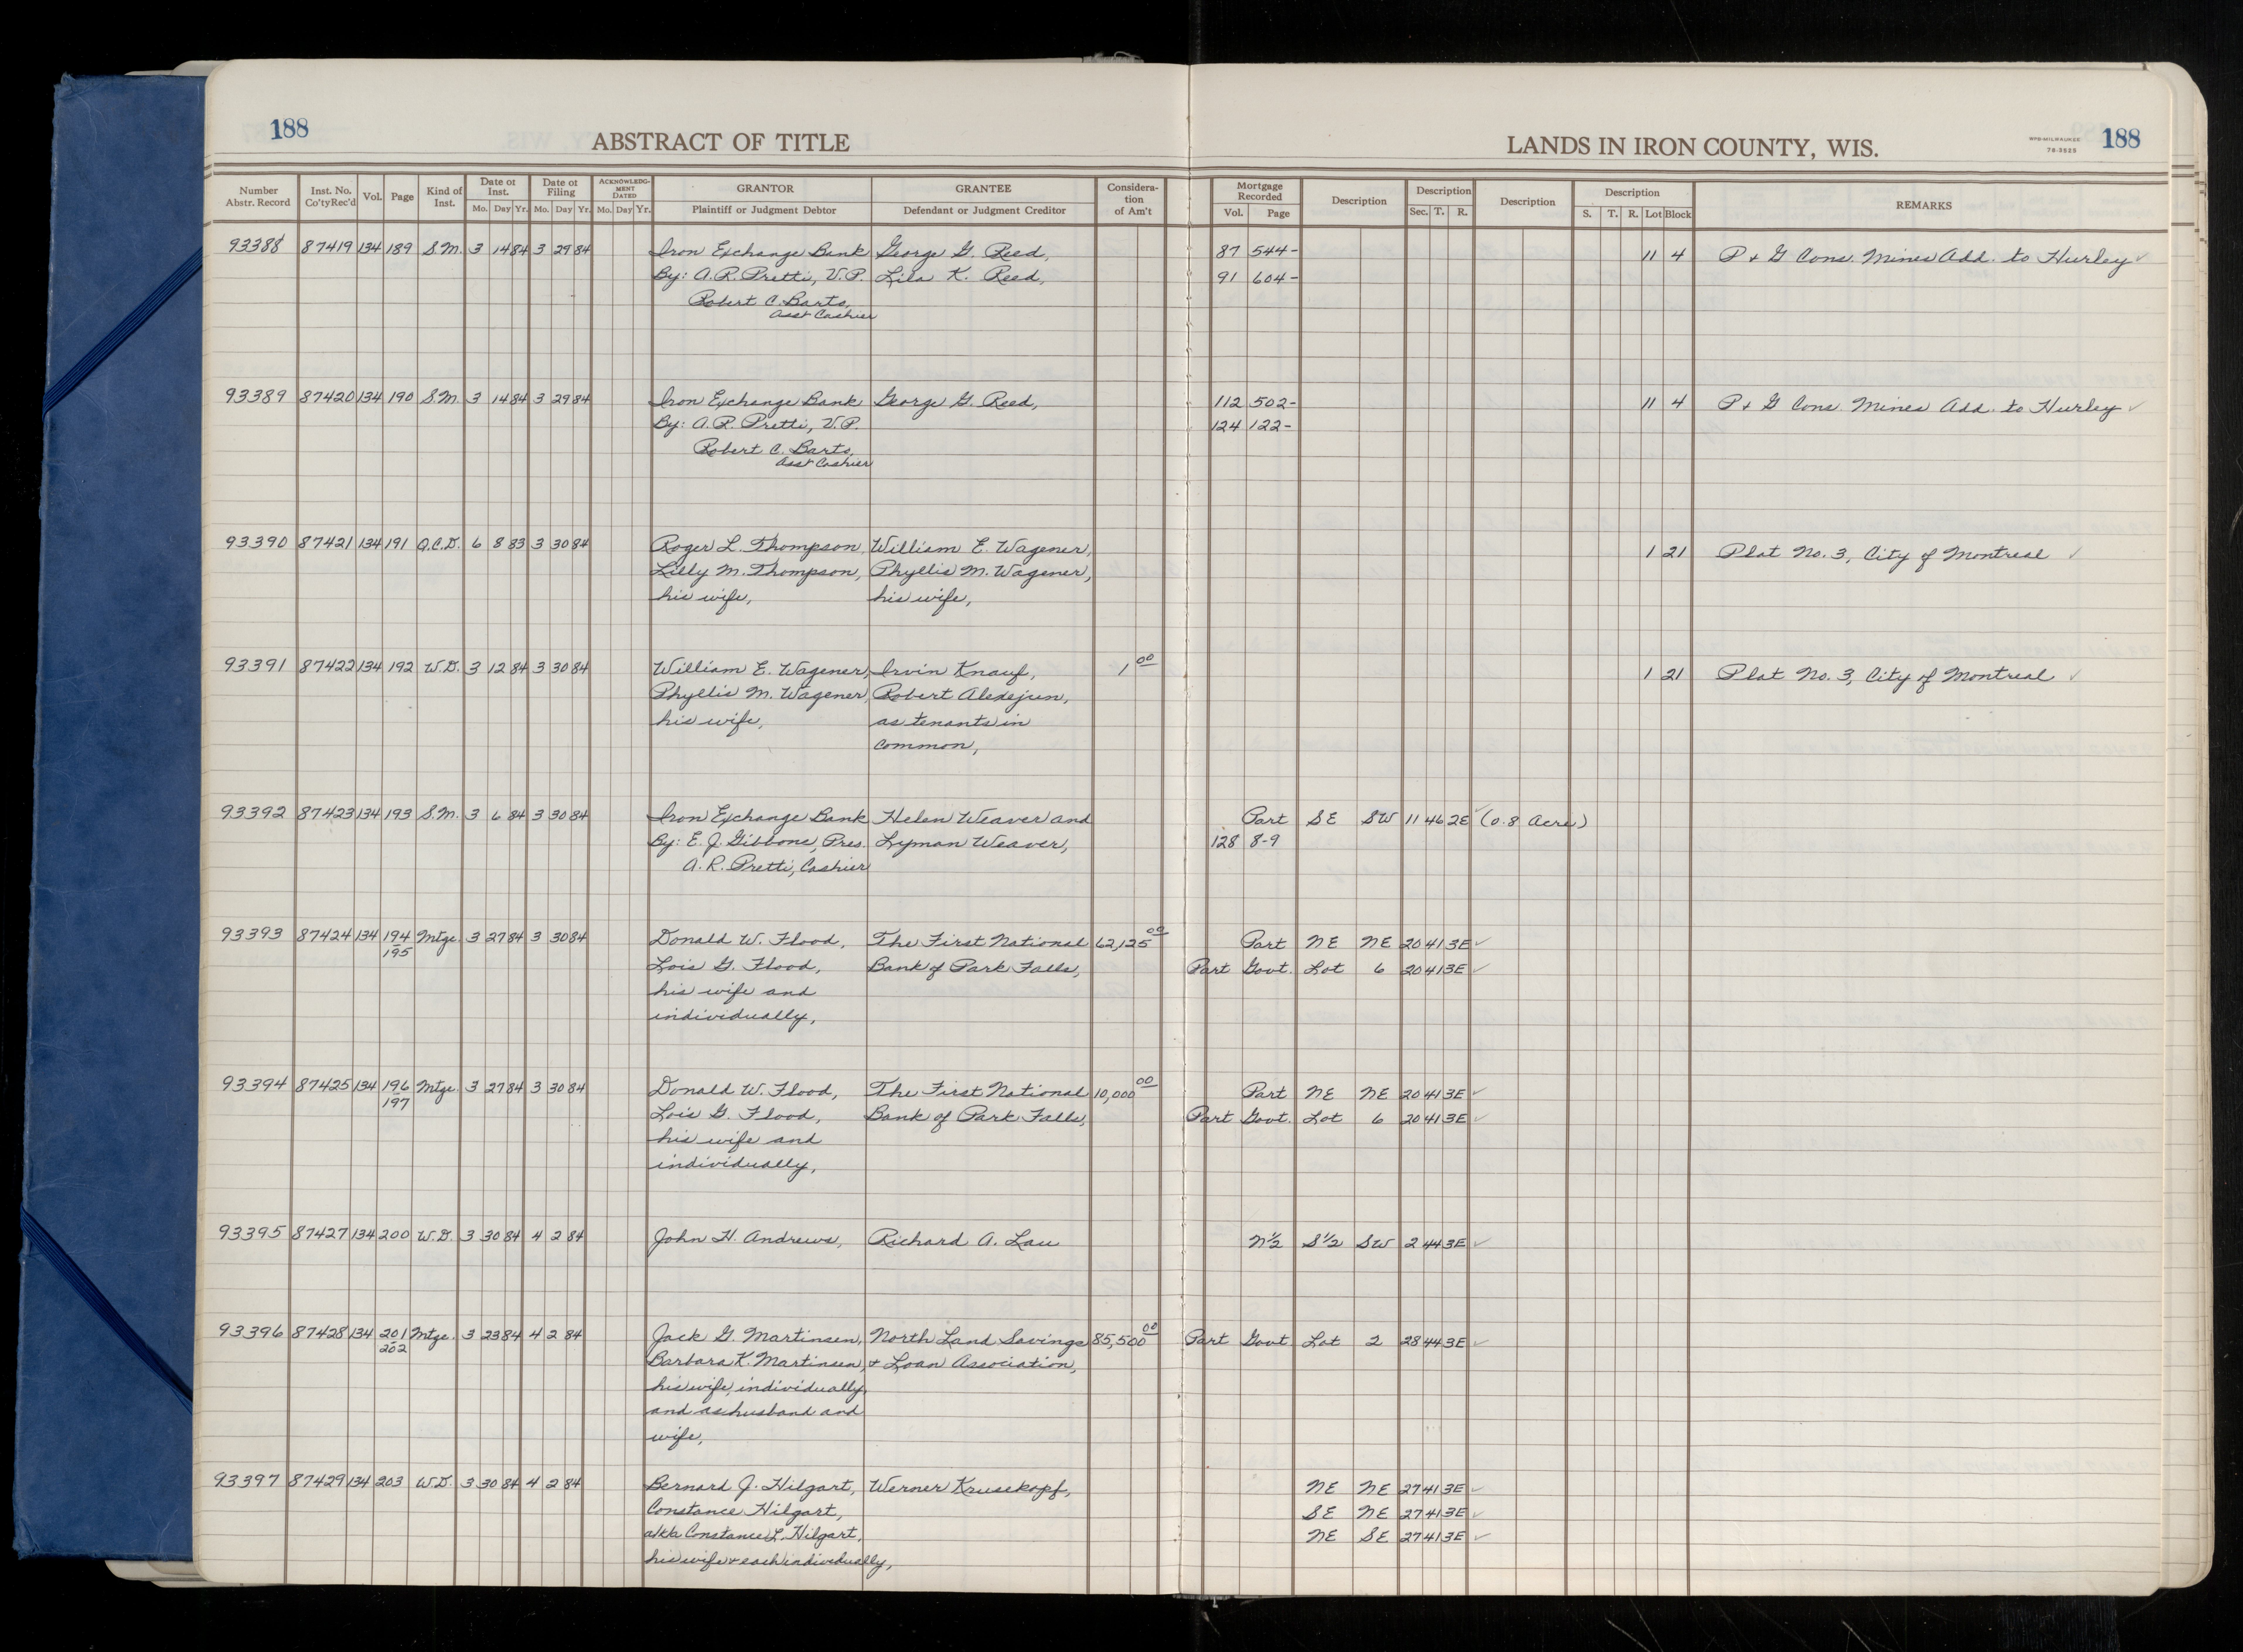 188
ABSTRACT OF TITLE
LANDS IN IRON COUNTY, WIS.
WPB-MILWAUKEE
78-3525
188
Number Abstr. Record | Inst. No. Co'ty Rec'd | Vol. | Page | Kind of Inst. | Date of Inst. Mo. Day Yr. | Date of Filing Mo. Day Yr. | ACKNOWLEDGMENT DATED Mo. Day Yr. | GRANTOR Plaintiff or Judgment Debtor | GRANTEE Defendant or Judgment Creditor | Consideration of Am't | Mortgage Recorded Vol. Page | Description | Description Sec. T. R. | Description | Description S. T. R. Lot Block | REMARKS
93388 87419 134 189 S.M. 3 14 84 3 29 84 Iron Exchange Bank George G. Reed, 87 544- 11 4 P & G Cons. Mines Add. to Hurley ✓
By: A.R. Pretti, V.P. Lila K. Reed, 91 604-
Robert C. Barto,
Asst Cashier
93389 87420 134 190 S.M. 3 14 84 3 29 84 Iron Exchange Bank George G. Reed, 112 502- 11 4 P & G Cons. Mines Add. to Hurley ✓
By: A.R. Pretti, V.P. 124 122-
Robert C. Barto,
Asst Cashier
93390 87421 134 191 Q.C.D. 6 8 83 3 30 84 Roger L. Thompson, William E. Wagener, 1 21 Plat No. 3, City of Montreal ✓
Lilly M. Thompson, Phyllis M. Wagener,
his wife, his wife,
93391 87422 134 192 W.D. 3 12 84 3 30 84 William E. Wagener, Irvin Knauf, 1 00 1 21 Plat No. 3, City of Montreal ✓
Phyllis M. Wagener, Robert Aledejun,
his wife, as tenants in
common,
93392 87423 134 193 S.M. 3 6 84 3 30 84 Iron Exchange Bank Helen Weaver and Part SE SW 11 46 2E ✓ (0.8 Acre)
By: E.J. Gibbons, Pres. Lyman Weaver, 128 8-9
A.R. Pretti, Cashier
93393 87424 134 194 Mtge. 3 27 84 3 30 84 Donald W. Flood, The First National 62,125 00 Part NE NE 20 41 3E ✓
195 Lois G. Flood, Bank of Park Falls, Part Govt. Lot 6 20 41 3E ✓
his wife and
individually,
93394 87425 134 196 Mtge. 3 27 84 3 30 84 Donald W. Flood, The First National 10,000 00 Part NE NE 20 41 3E ✓
197 Lois G. Flood, Bank of Park Falls, Part Govt. Lot 6 20 41 3E ✓
his wife and
individually,
93395 87427 134 200 W.D. 3 30 84 4 2 84 John H. Andrews, Richard A. Lau N½ S½ SW 2 44 3E ✓
93396 87428 134 201 Mtge. 3 23 84 4 2 84 Jack G. Martinsen, North Land Savings 85,500 00 Part Govt Lot 2 28 44 3E ✓
202 Barbara K. Martinsen, & Loan Association,
his wife, individually
and as husband and
wife,
93397 87429 134 203 W.D. 3 30 84 4 2 84 Bernard J. Hilgart, Werner Krusekopf, NE NE 27 41 3E ✓
Constance Hilgart, SE NE 27 41 3E ✓
a/k/a Constance L. Hilgart, NE SE 27 41 3E ✓
his wife & each individually,